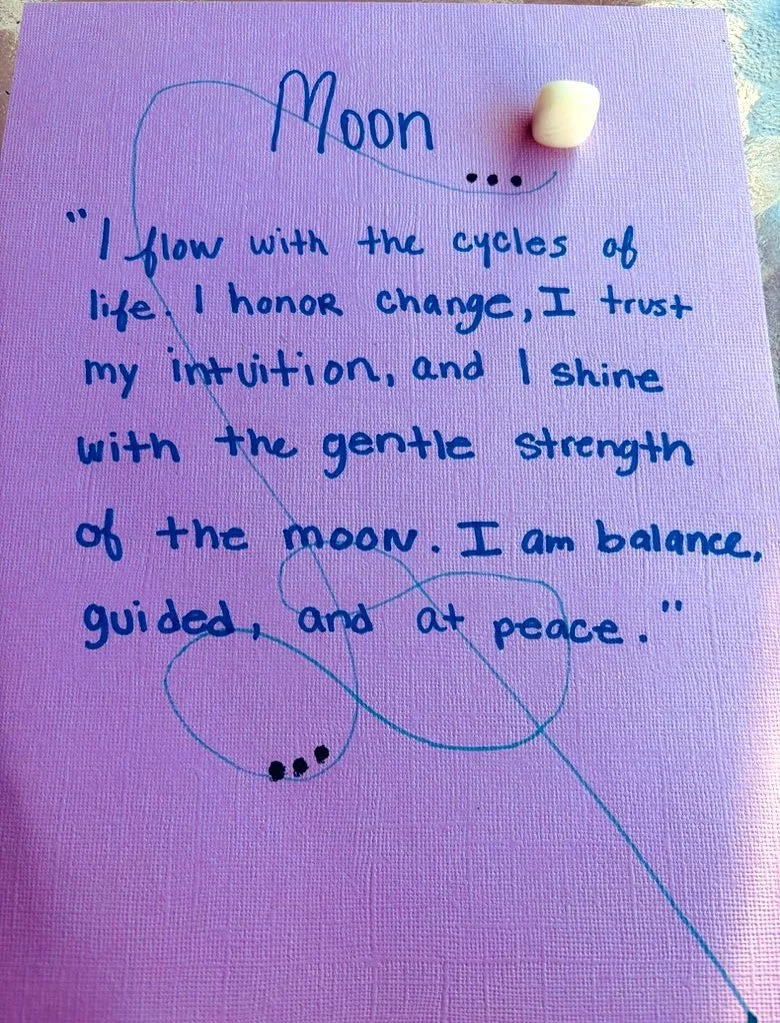 Moon
...
"I flow with the cycles of
life. I honor change, I trust
my intuition, and I shine
with the gentle strength
of the moon. I am balance,
guided, and at peace."
...